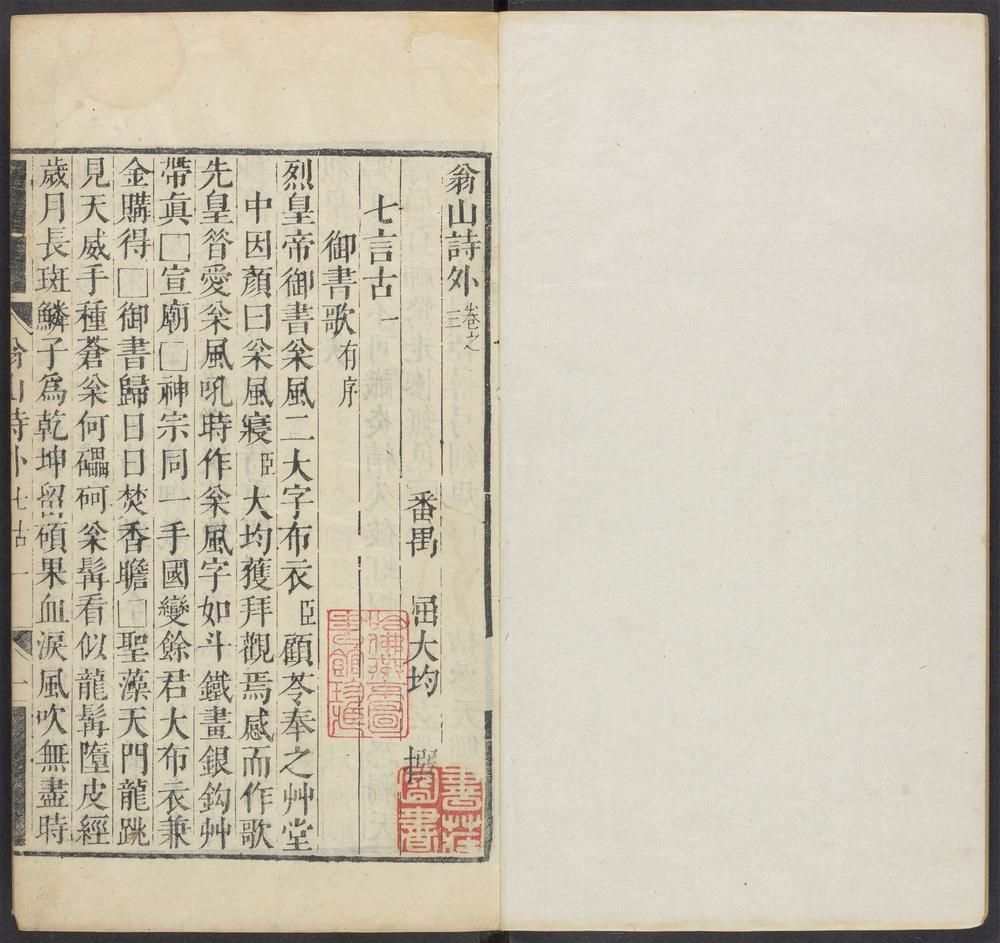 翁山詩外 卷之三
番禺 屈大均 撰
七言古一
御書歌有序
烈皇帝御書枀風二大字布衣臣顧苓奉之艸堂
中因顏曰枀風寢臣大均獲拜觀焉感而作歌
先皇昝愛枀風吼時作枀風字如斗鐵畫銀鈎艸
帶眞□宣廟□神宗同一手國變餘君大布衣兼
金購得□御書歸日日焚香瞻□聖藻天門龍跳
見天威手種蒼枀何礧砢枀髯看似龍髯墮皮經
歲月長斑鱗子爲乾坤畱碩果血淚風吹無盡時
翁山詩外 七古一 一
哈佛燕京圖書館珍藏
圖書